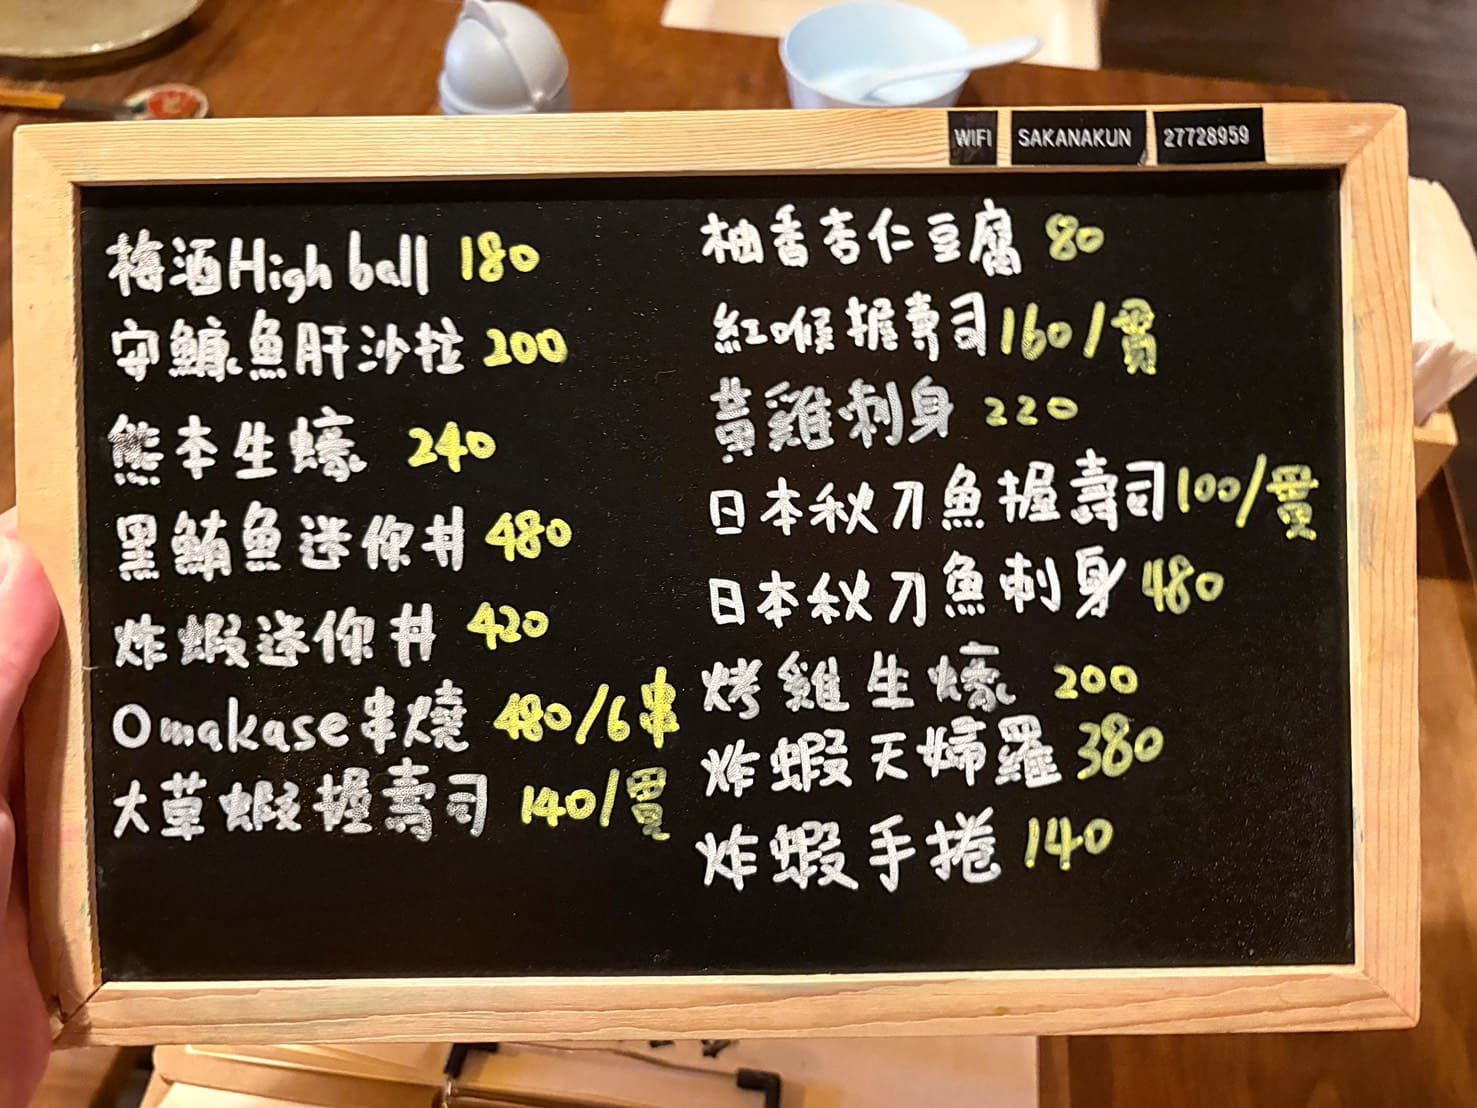 WIFI SAKANAKUN 27728959
梅酒High ball 180
安鱇魚肝沙拉 200
熊本生蠔 240
黑鮪魚迷你丼 480
炸蝦迷你丼 420
Omakase串燒 480/6串
大草蝦握壽司 140/貫
柚香杏仁豆腐 80
紅喉握壽司 160/貫
黃雞刺身 220
日本秋刀魚握壽司 100/貫
日本秋刀魚刺身 480
烤雞生蠔 200
炸蝦天婦羅 380
炸蝦手捲 140